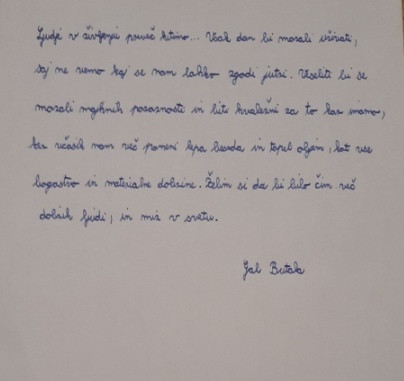 Ljudje v življenju preveč hitimo... Vsak dan bi morali uživati,
saj ne vemo kaj se nam lahko zgodi jutri. Veseliti bi se
morali majhnih pozornosti in biti hvaležni za to kar imamo,
ker včasih nam več pomeni lepa beseda in topel objem, kot vse
bogastvo in materialne dobrine. Želim si da bi bilo čim več
dobrih ljudi, in mir v svetu.
Gal